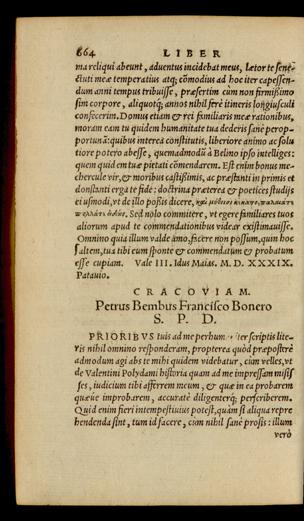 664 LIBER
ma reliqui abeunt, aduentus incidebat meus, Lætor te sene-
ctuti meæ temperatius atq; cōmodius ad hoc iter capessen-
dum anni tempus tribuisse, præsertim cùm non firmißimo
sim corpore, aliquotq; annos nihil ferè itineris longiusculi
confecerim. Domus etiam & rei familiaris meæ rationibus,
moram eam tu quidem humanitate tua dederis sanè perop-
portunã: quibus interea constitutis, liberiore animo ac solu
tiore potero abesse, quemadmodũ à Belino ipso intelliges:
quem quidem tuæ pietati cōmendarem. Est enim bonus me-
hercule vir, & moribus castißimis, ac præstanti in primis et
constanti erga te fide: doctrina præterea & poetices studijs
eiusmodi, vt de illo poßis dicere,
Sed nolo committere, vt egere familiares tuos
aliorum apud te commendationibus videar existimauisse.
Omnino quia illum valde amo, facere non possum, quin hoc
saltem, tua tibi eum sponte & commendatum & probatum
esse cupiam. Vale III. Idus Maias. M. D. XXXIX.
Patauio.
CRACOVIAM.
Petrus Bembus Francisco Bonero
S. P. D.
PRIORIBVS tuis ad me scriptis lite-
ris nihil omnino responderam, propterea quòd præposterè
admodum agi abs te mihi quidem videbatur, cùm velles, vt
de Valentini Polydami historia quam ad me impressam misis
ses, iudicium tibi afferrem meum, & quæ in ea probarem
quæue improbarem, accuratè diligenterq; perscriberem.
Quid enim fieri intempestiuius potest, quàm si aliqua repre
hendenda sint, tum id facere, cùm nihil sanè prosis: illum
verò